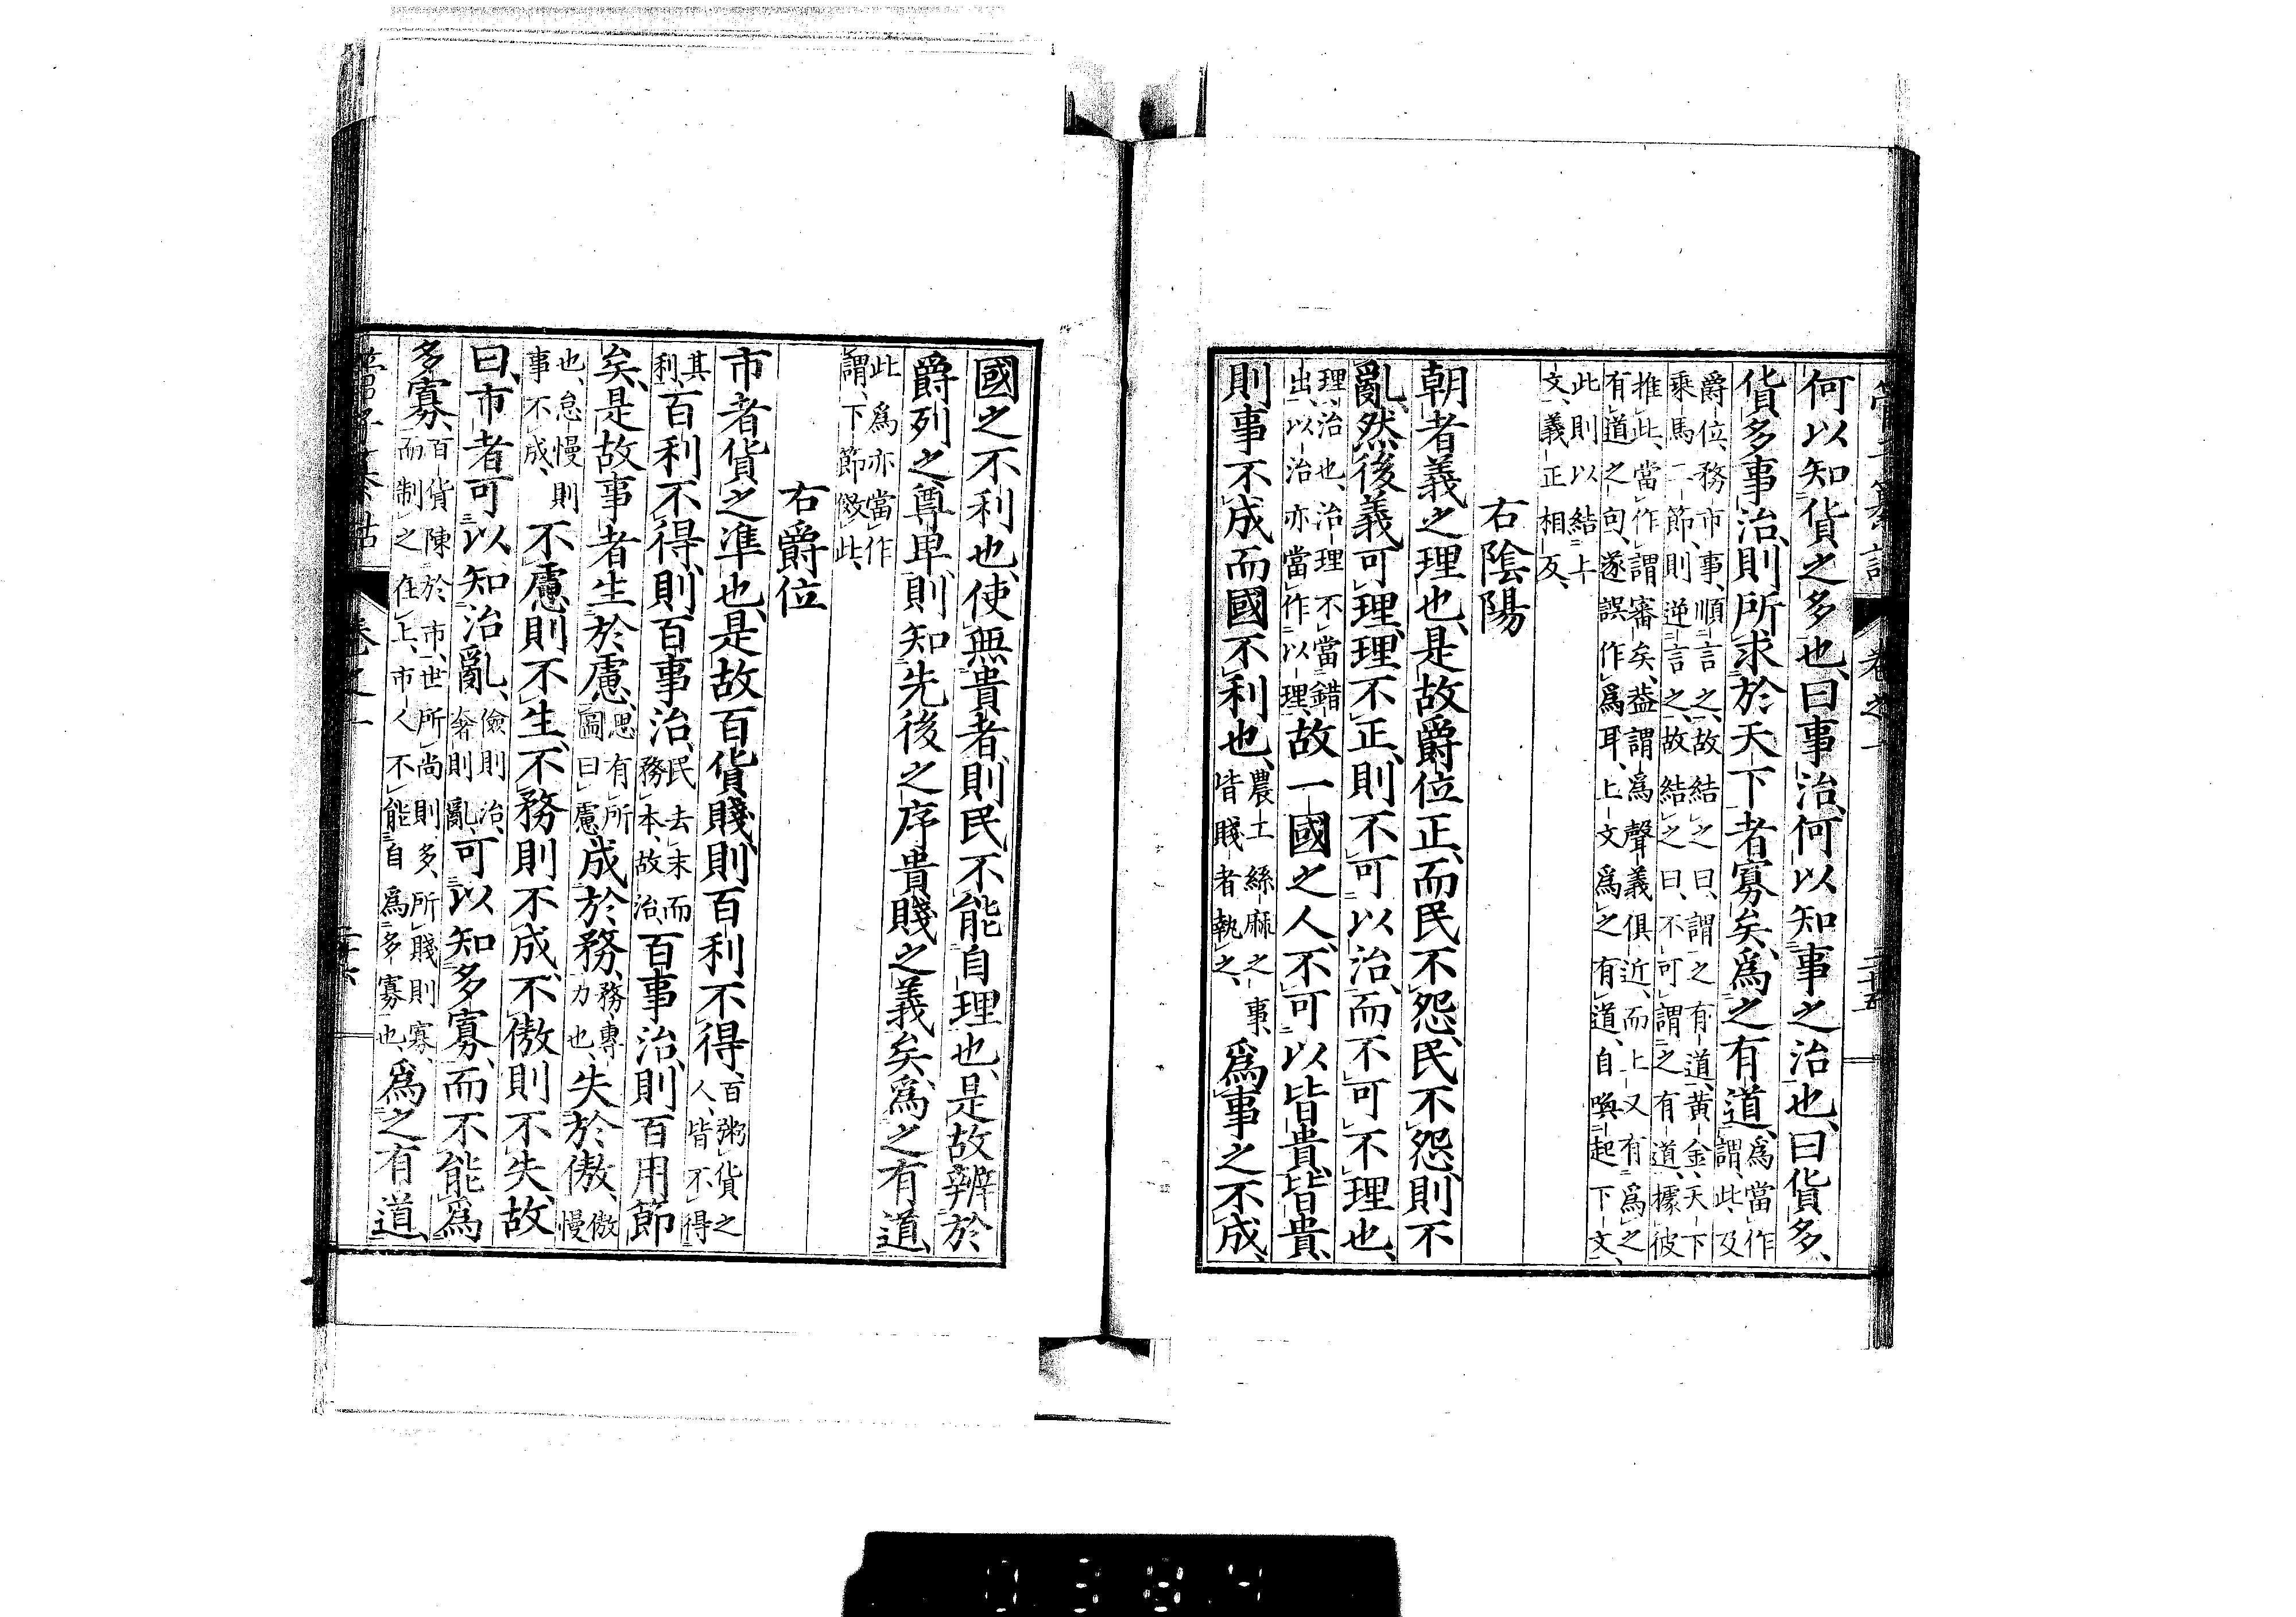 管子纂詁 卷之一 二十五
何以知貨之多也、曰事治、何以知事之治也、曰貨多、
貨多事治、則所求於天下者寡矣、爲之有道、爲當作謂、此及
爵位、務市事、順言之、故結之曰、謂之有道、黃金、天下
乘馬二節、則逆言之、故結之曰、不可謂之有道、據彼
推此、當作謂審矣、葢謂爲聲義俱近、而上又有爲之
有道之句、遂誤作爲耳、上文爲之有道、自喚起下文、
此則以結上
文、義正相反、
右陰陽
朝者義之理也、是故爵位正、而民不怨、民不怨、則不
亂、然後義可理、理不正、則不可以治、而不可不理也、
理、治也、治理不當錯出、以治亦當作以理、故一國之人、不可以皆貴、皆貴、
則事不成而國不利也、農工絲麻之事、皆賤者執之、爲事之不成、
國之不利也、使無貴者、則民不能自理也、是故辨於
爵列之尊卑、則知先後之序貴賤之義矣、爲之有道、
此爲亦當作
謂、下節傚此、
右爵位
市者貨之準也、是故百貨賤、則百利不得、百粥貨之人、皆不得
其利、百利不得、則百事治、民去末而務本、故治、百事治、則百用節
矣、是故事者生於慮、思有所圖曰慮、成於務、務專力也、失於傲、傲慢
也、怠慢則事不成、不慮則不生、不務則不成、不傲則不失、故
曰、市者可以知治亂、儉則治、奢則亂、可以知多寡、而不能爲
多寡、百貨陳於市、世所尚則多、所賤則寡、而制之在上、市人不能自爲多寡也、爲之有道、
管子纂詁 卷之一 二十六